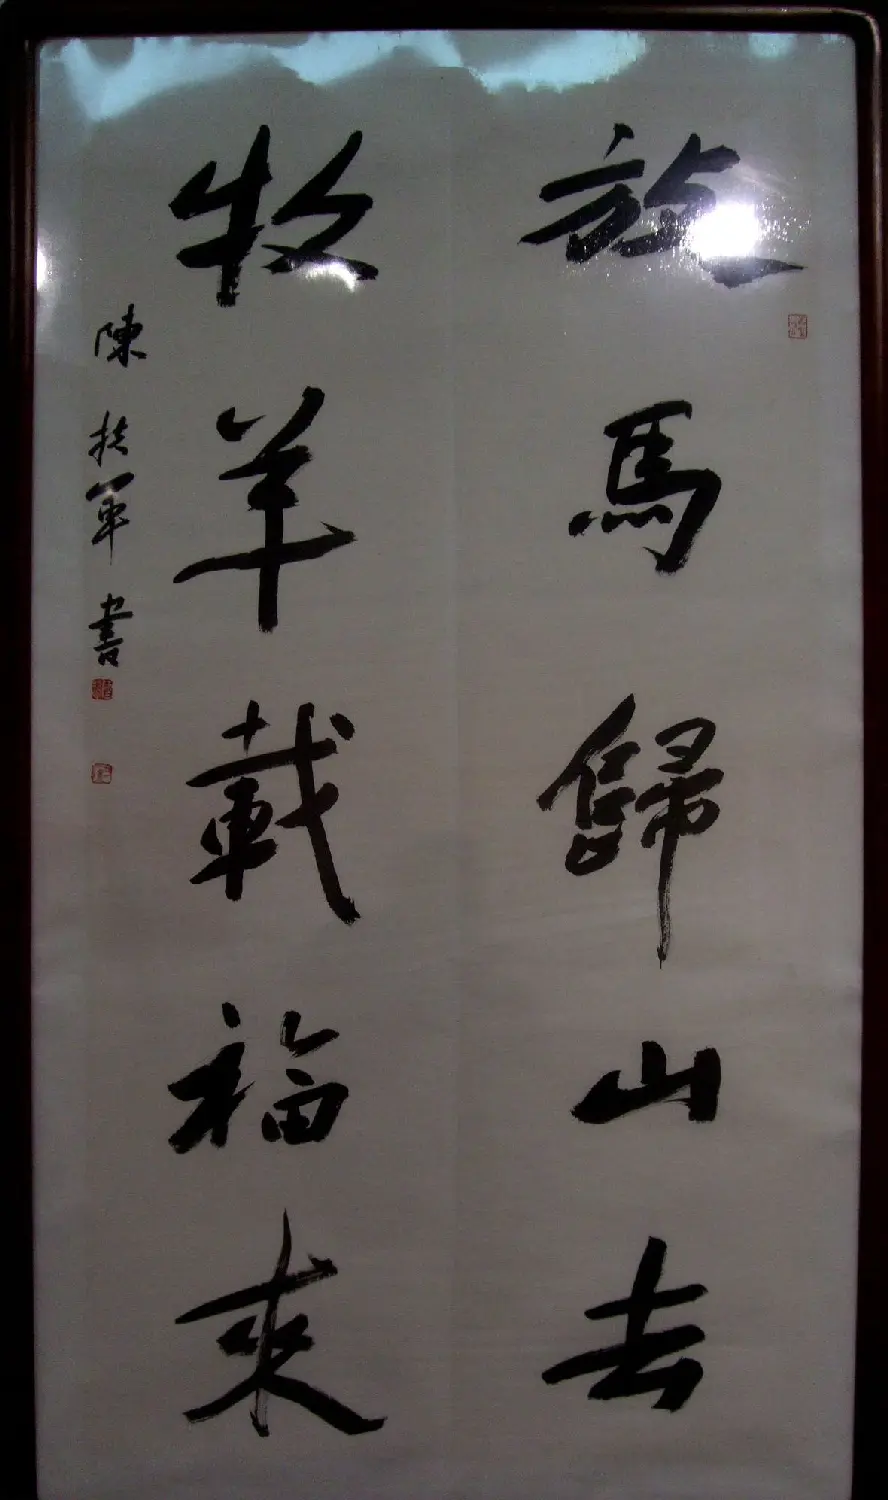 放馬歸山去
牧羊載福來
陳扶軍書